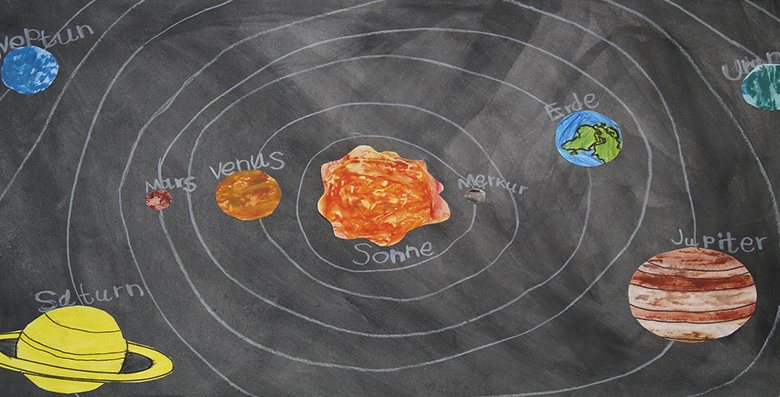 Neptun
Uran
Erde
Mars
Venus
Merkur
Sonne
Jupiter
Saturn